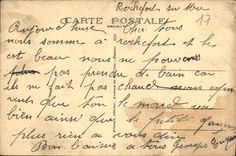 Rochefort sur Mer
17
CARTE POSTALE
Aujourd'hui Cher tous
nous somme à rochefort et les
est beau nous ne pouvons
pas prendre de bain car
ils ne fait pas chaud nous
rent que ton le monde va
bien ainsi que le petit
plus rien a vous dire
Bon Baiser a tous Georges